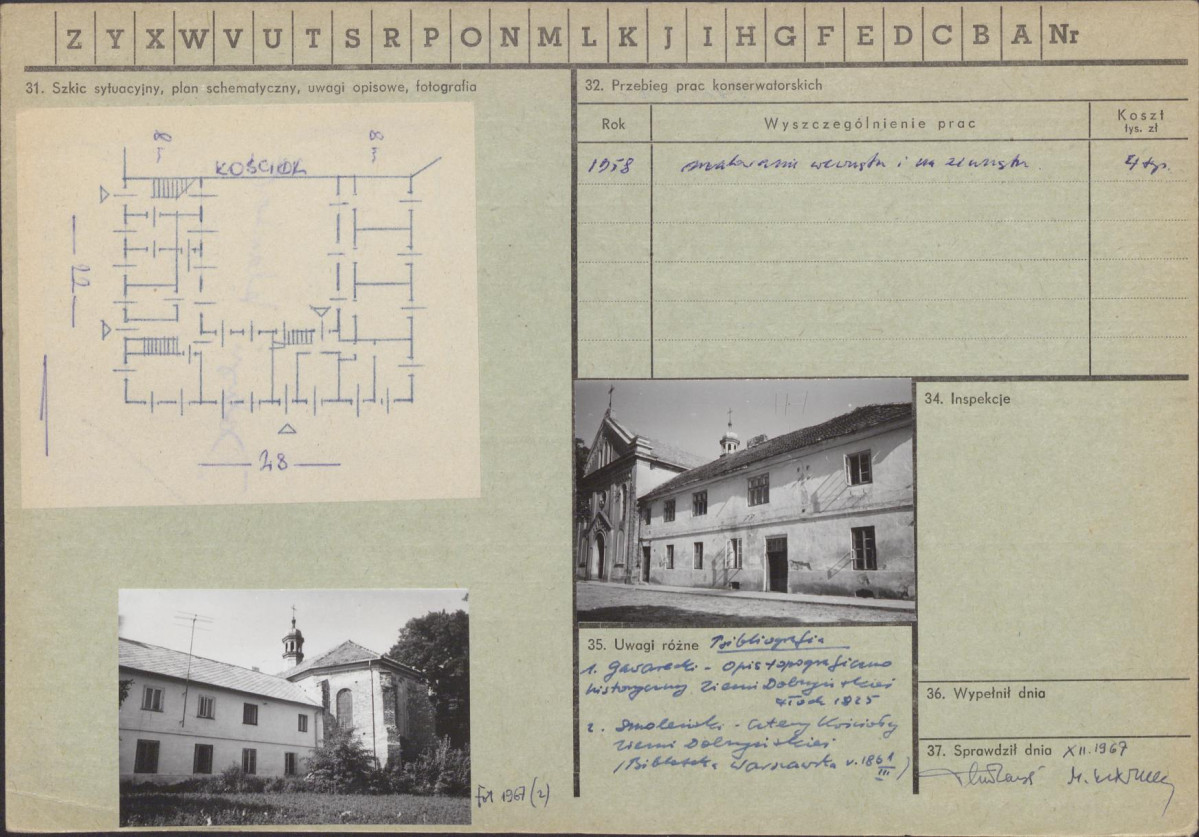 Z Y X W V U T S R P O N M L K J I H G F E D C B A Nr
31. Szkic sytuacyjny, plan schematyczny, uwagi opisowe, fotografia
KOŚCIÓŁ
22
28
Fot 1967 (2)
32. Przebieg prac konserwatorskich
Rok Wyszczególnienie prac Koszt
tys. zł
1958 malowanie wewnątrz i na zewnątrz 4 tys.
34. Inspekcje
35. Uwagi różne Bibliografia
1. Gawarecki - Opis topograficzno
historyczny Ziemi Dobrzyńskiej
1825
2. Smoleński - Cztery Kościoły
Ziemi Dobrzyńskiej
(Biblioteka Warszawska r. 1861
III)
36. Wypełnił dnia
37. Sprawdził dnia XII. 1967